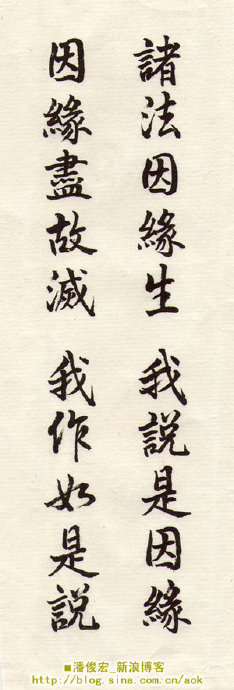 諸法因緣生 我說是因緣
因緣盡故滅 我作如是說
■潘俊宏_新浪博客
http://blog.sina.com.cn/aok